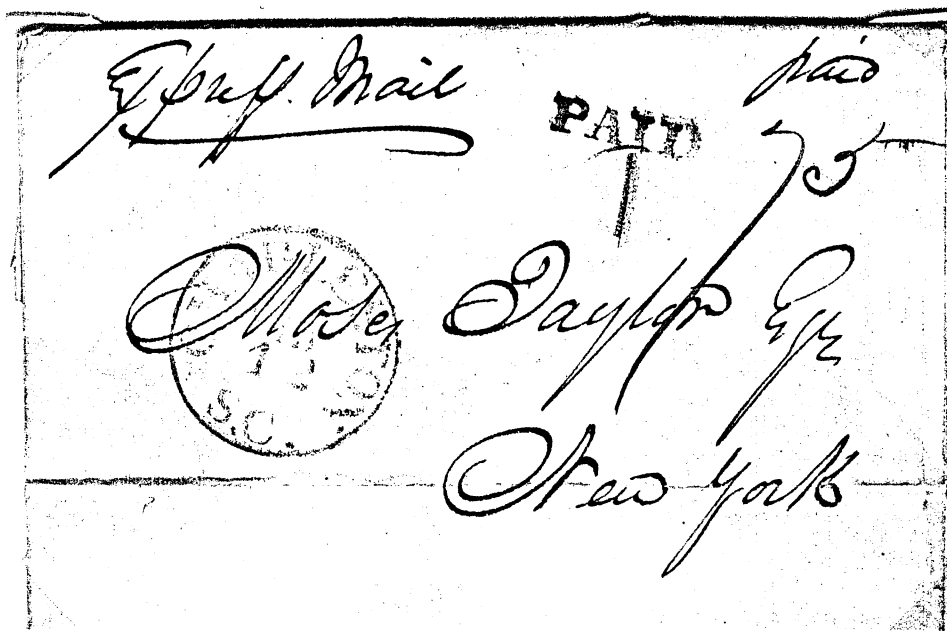 Express Mail
paid
PAID
75
Moses Taylor Esqr
New York
S.C.